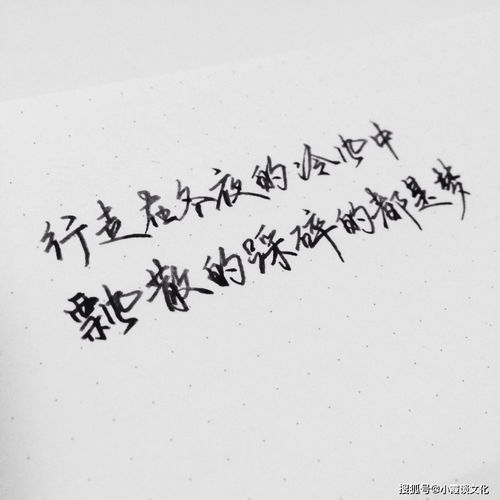 行走在冬夜的冷风中
飘散的踩碎的都是梦
搜狐号@小霞谈文化